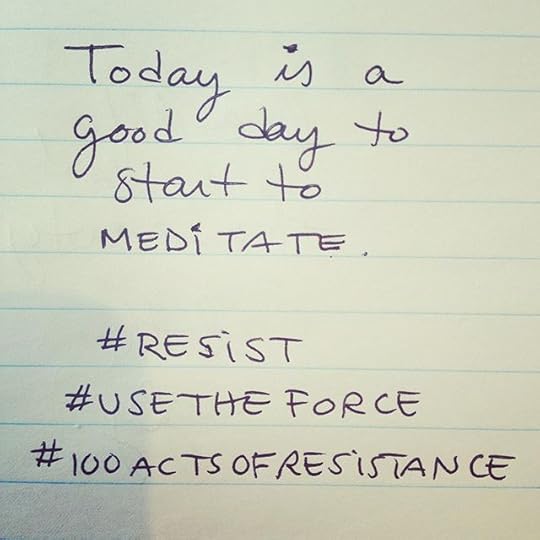 Today is a
good day to
start to
MEDiTATE.
#RESiST
#USETHE FORCE
#100ACTSOFRESiSTANCE